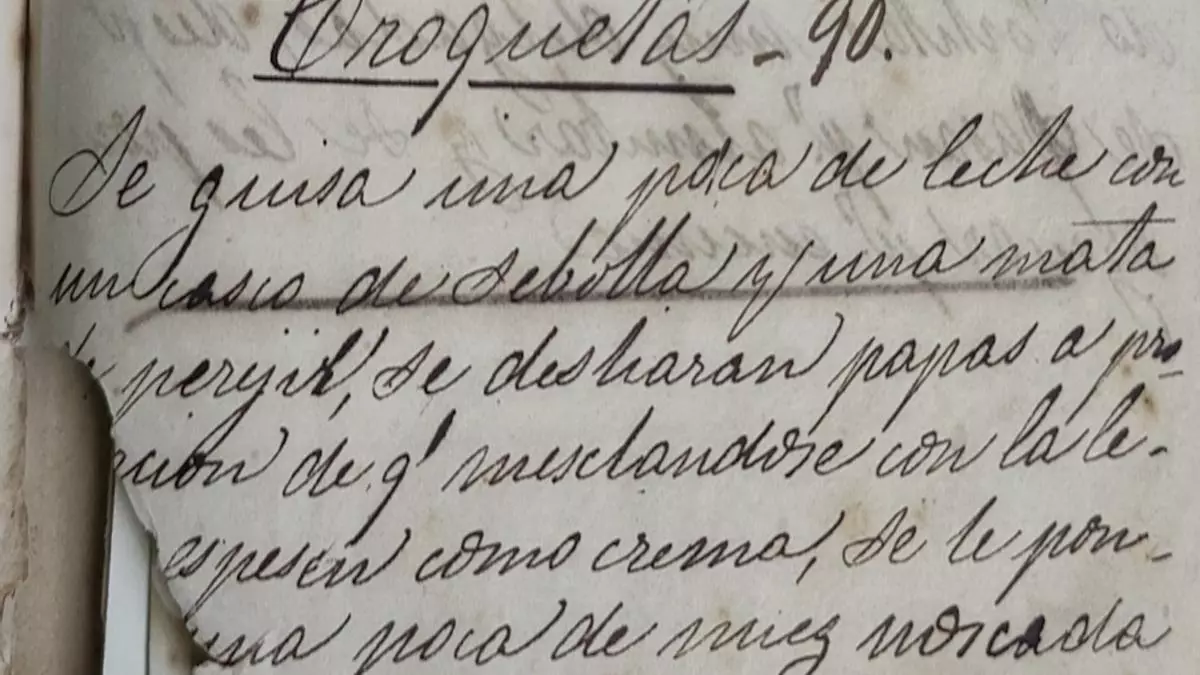 Croquetas - 90.
Se guisa una poca de leche con
un casco de sebolla y una mata
perejil, se desharan papas a pro-
rcion de q' mesclandose con la le-
espesen como crema, se le pon-
una poca de nuez noscada